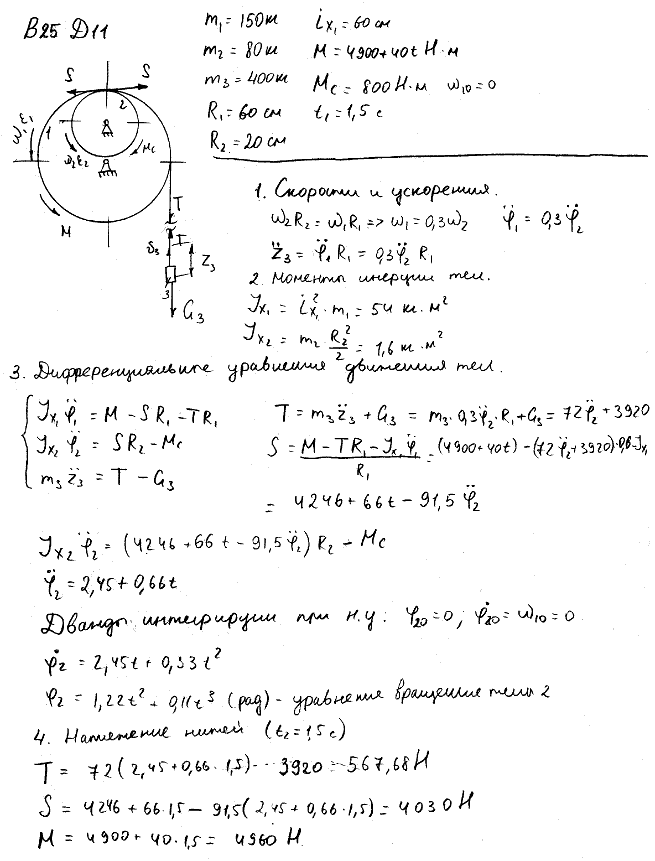 В25 Д11
m₁ = 150 кг    i_x₁ = 60 см
m₂ = 80 кг    M = 4900+40t Н·м
m₃ = 400 кг    M_C = 800 Н·м  ω₁₀ = 0
R₁ = 60 см    t₁ = 1,5 с
R₂ = 20 см
S S
1 2
ω₁ ε₁
ω₂ ε₂ M_C
M
T
T
δ₃ Z₃
3
G₃
1. Скорости и ускорения.
ω₂R₂ = ω₁R₁ => ω₁ = 0,3ω₂    φ̈₁ = 0,3φ̈₂
z̈₃ = φ̈₁ R₁ = 0,3φ̈₂ R₁
2. Моменты инерции тел.
J_x₁ = i²_x₁ · m₁ = 54 кг·м²
J_x₂ = m₂ · R₂²/2 = 1,6 кг·м²
3. Дифференциальные уравнения движения тел.
J_x₁ φ̈₁ = M - SR₁ - TR₁    T = m₃z̈₃ + G₃ = m₃·0,3φ̈₂·R₁ + G₃ = 72φ̈₂ + 3920
J_x₂ φ̈₂ = SR₂ - M_C    S = (M - TR₁ - J_x₁ φ̈₁)/R₁ = (4900+40t) - (72φ̈₂ + 3920)·0,6 - J_x₁
m₃z̈₃ = T - G₃    = 4246 + 66t - 91,5 φ̈₂
J_x₂ φ̈₂ = (4246 + 66t - 91,5φ̈₂) R₂ - M_C
φ̈₂ = 2,45 + 0,66t
Дважды интегрируем при н.у: φ₂₀ = 0; φ̇₂₀ = ω₁₀ = 0
φ̇₂ = 2,45t + 0,33t²
φ₂ = 1,22t² + 0,11t³ (рад) - уравнение вращение тела 2
4. Натяжение нитей (t₂ = 1,5 с)
T = 72(2,45+0,66·1,5)-··3920 = 567,68 Н
S = 4246 + 66·1,5 - 91,5(2,45 + 0,66·1,5) = 4030 Н
M = 4900 + 40·1,5 = 4960 Н